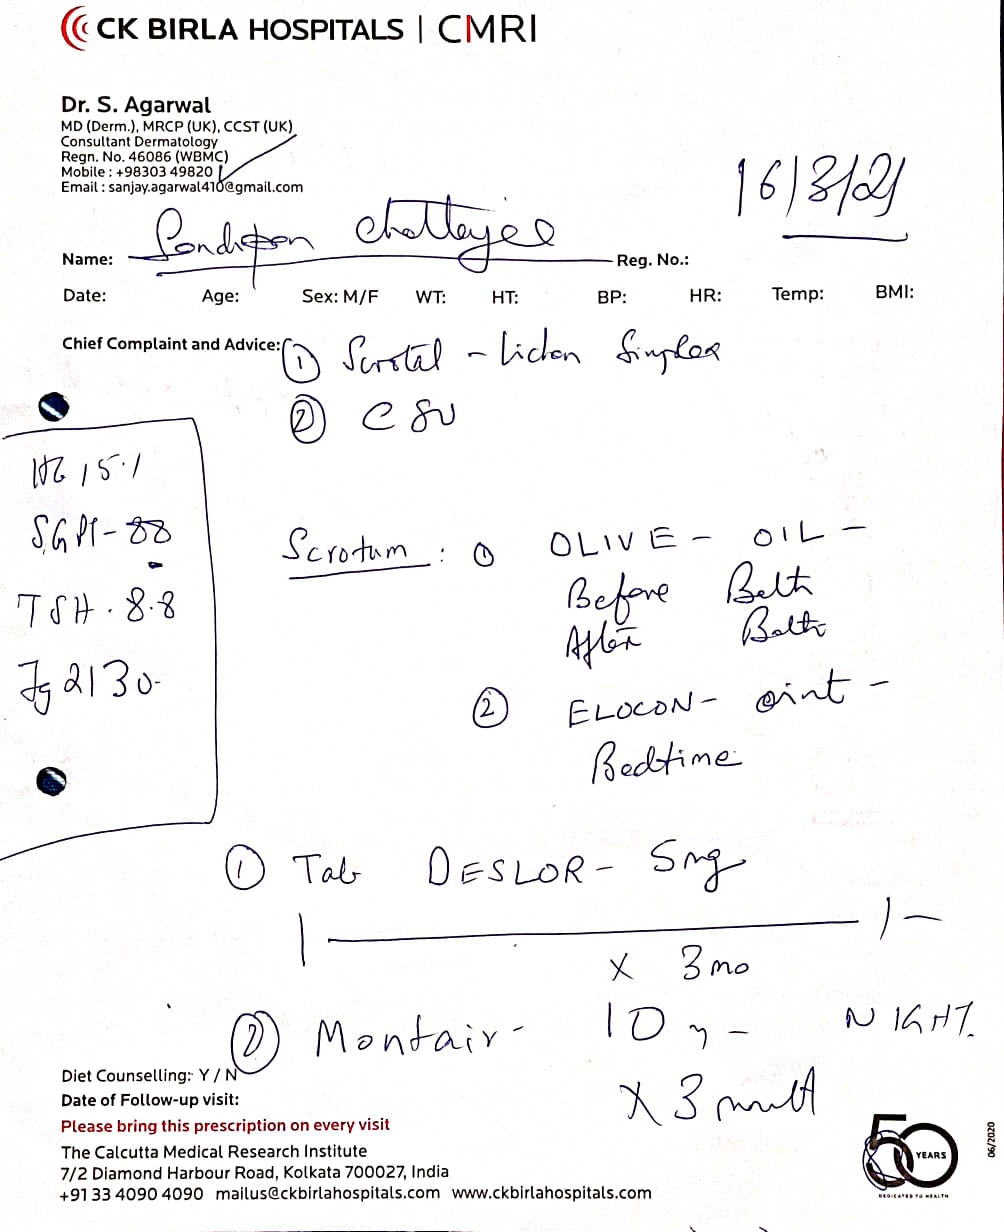 CK BIRLA HOSPITALS | CMRI
Dr. S. Agarwal
MD (Derm.), MRCP (UK), CCST (UK)
Consultant Dermatology
Regn. No. 46086 (WBMC)
Mobile : +98303 49820
Email : sanjay.agarwal410@gmail.com
16/3/21
Name: Sandipan Chatterjee Reg. No.:
Date: Age: Sex: M/F WT: HT: BP: HR: Temp: BMI:
Chief Complaint and Advice: ① Scrotal - Lichen Simplex
② CSU
Hb 15.1
SGPT - 88
TSH . 8.8
Ig 2130
Scrotum : ① OLIVE - OIL -
Before Bath
After Bath
② ELOCON - oint -
Bedtime
① Tab DESLOR - 5mg
1 1
x 3 mo
② Montair - 10 - NIGHT.
x 3 month
Diet Counselling: Y / N
Date of Follow-up visit:
Please bring this prescription on every visit
The Calcutta Medical Research Institute
7/2 Diamond Harbour Road, Kolkata 700027, India
+91 33 4090 4090 mailus@ckbirlahospitals.com www.ckbirlahospitals.com
50 YEARS
DEDICATED TO HEALTH
06/2020